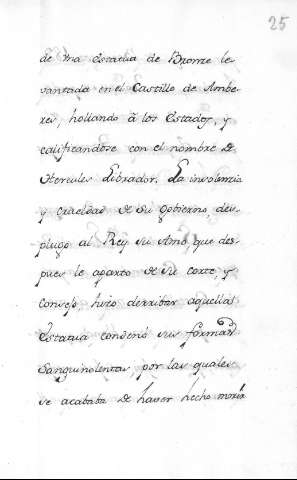 25
de una estatua de Bronze le
vantada en el Castillo de Ambe
res, hollando à los Estados, y
calificandose con el nombre de
Hercules Librador. La insolenzia
y crueldad de su govierno, des-
plugo al Rey su Amo, que des-
pues le aparto de su corte, y
Consejo hizo derribar aquella
Estatua condenó sus formas
Sanguinolentas, por las quales
se acababa de haver hecho morir